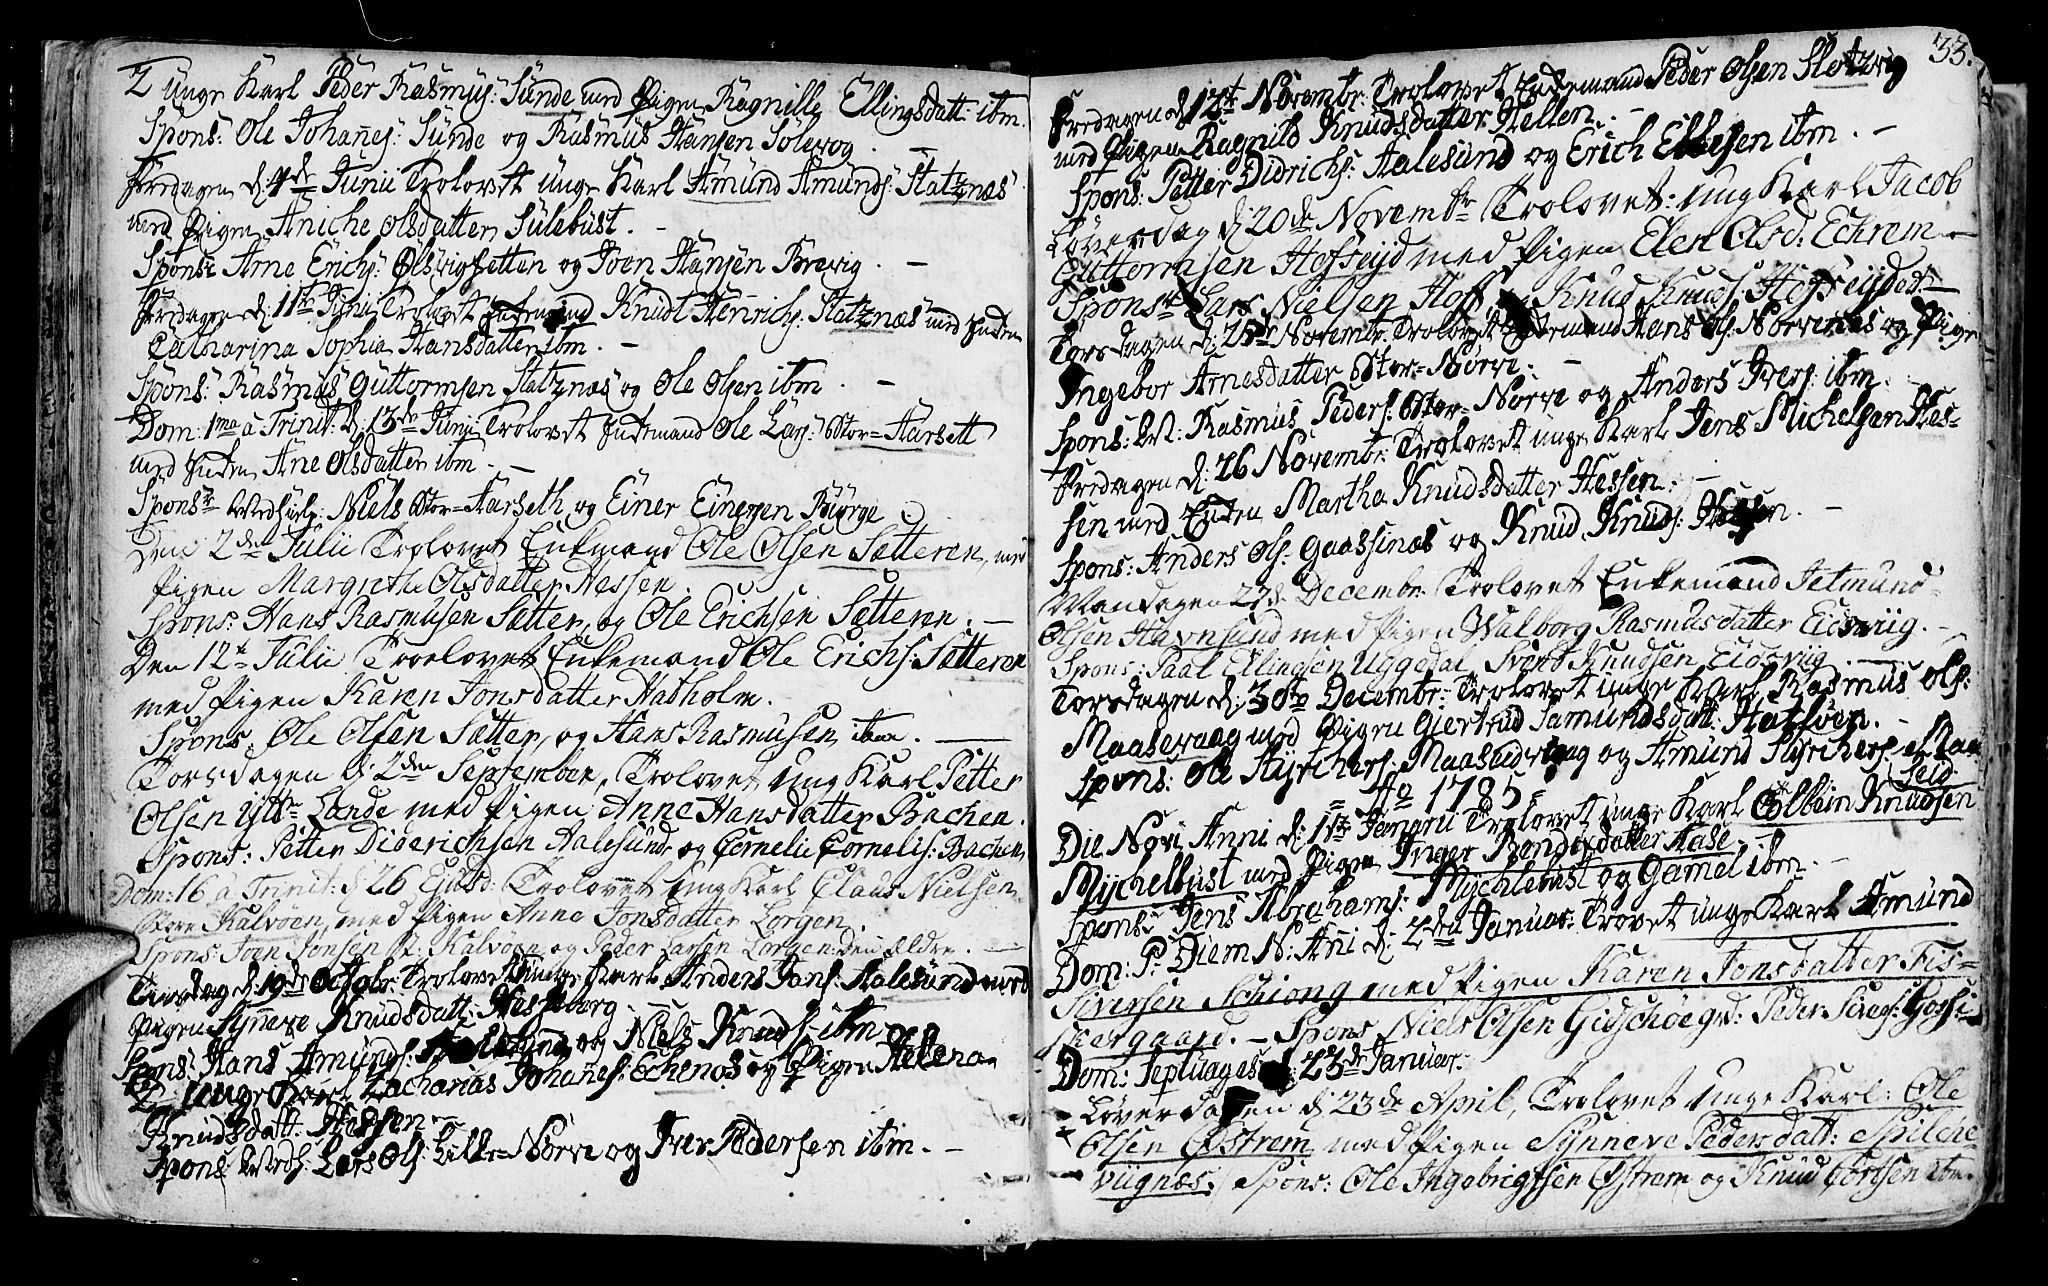 2 unge Karl Peder Rasmus: Sunde med Pigen Ragnille Ellingsdatt: ibm.
Spons: Ole Johañes: Sunde og Rasmus Hansen Solevog. —
Fredagen d: 4de Junii Trolovet unge Karl Amund Amunds: Statznæs
med Pigen Aniche Olsdatter Sulebust. —
Spons: Arne Erichs: Olsvigsetten og Joen Hansen Brevig. —
Fredagen d: 11te Junii Trolovet Enkemand Knudt Henrichs: Statznæs med Enken
Catharina Sophia Hansdatter ibm. —
Spons: Rasmus Guttormsen Statznæs og Ole Olsen ibm. —
Dom: 1ma à Trinit: d: 13de Junii Trolovet Enkemand Ole Lars: Stor=Aarsett
med Enken Ane Olsdatter ibm. —
Sponsr Medhielp: Niels Stor=Aarseth og Einer Einersen Biørge.
Den 2den Julii Trolovet Enkemand Ole Olsen Sætteren, med
Pigen Margrethe Olsdatter Hessen.
Spons: Hans Rasmusen Sætter, og Ole Erichsen Sætteren. —
Den 12te Julii Troelovet Enkemand Ole Erichs: Sætteren
med Pigen Karen Jonsdatter Hatholm.
Spons: Ole Olsen Sætter, og Hans Rasmusen ibm. —
Torsdagen d: 2den September, Trolovet Ung Karl Petter
Olsen Ytt: Lande med Pigen Anne Hansdatter Bachen.
Spons: Petter Diderichsen Aalesund og Cornelii Cornelis: Bachen
Dom: 16 à Trinit: d: 26 Ejusd: Trolovet Ung Karl Claus Nielsen
Store Kalvøen, med Pigen Anne Jonsdatter Lorgen.
Spons: Joen Jonsen St: Kalvøen og Peder Larsen Lorgen den ældre. —
Tirsdag d: 19de Octobr: Trolovet unge Karl Anders Jans: Aalesund med
Pigen Synneve Knudsdatt: Hessberg. —
Spons: Hans Amunds: Aalesund og Niels Knuds: ibm
2. unge Karl Zacharias Johañes: Echenos og Pigen Hellena
Knudsdatt: Hessen. —
Spons: Medh: Lars Ols: Lille=Nørve og Iver Pedersen ibm. —
33.
Fredagen d: 12te Novembr: Trolovet Enkemand Peder Olsen Slotzvig
med Pigen Ragnild Knudsdatter Hellen. —
Spons: Petter Didrichs: Aalesund og Erich Ellefsen ibm. —
Løverdag d: 20de Novembr: Trolovet: ung Karl Jacob
Guttormsen Hofseyd med Pigen Elen Olsd: Echrem —
Sponsr Lars Nielsen Hoff og Knud Knuds: Hofseydet —
Torsdagen d: 25de Novembr: Trolovet Enkemand Hans Ols: Nørvenæs og Pigen
Ingebor Arnesdatter Stor=Nørve. —
Spons: Mt: Rasmus Peders: Stor=Nørve og Anders Ivers: ibm.
Fredagen d: 26 Novembr: Trolovet unge Karl Jens Michelsen Hes=
sen med Enken Martha Knudsdatter Hessen. —
Spons: Anders Ols: Gaassnæs og Knud Knuds: Hessen. —
Mandagen 27d: Decembr: Trolovet Enkemand Jetmund
Olsen Havnsund med Pigen Walborg Rasmusdatter Eidsviig. —
Spons: Paal Ellingsen Uggedal, Svend Knudsen Eidsviig. —
Torsdagen d: 30te Decembr: Trolovet unge Karl Rasmus Ols:
Maasevaag med Pigen Giertrud Samundsdatt: Hatløen. —
Spons: Ole Styrchers: Maasevaag og Amund Styrchers: Maa
= Ao 1785 =
Seid.
Die Novi Anni d: 1te Januarii Trolovet unge Karl Colbein Knudsen
Mychelbust med Pigen Inger Bendixdatter Aase.
Spons: Jens Abrahams: Mychlebust og Gamel ibm. —
Dom: P: Diem N: Añi d: 2den Januar: Trovet unge Karl Amund
Siversen Schiong med Pigen Karen Jonsdatter Fis=
kergaard. — Spons Niels Olsen Gidschøegrd: Peder Sivers: Gossi
Dom: Septuages: d: 23de Januar:
Løverdagen d: 23de April, Trolovet Unge Karl: Ole
Olsen Østrem med Pigen Synneve Pedersdatt: Spilche
viignæs. Spons: Ole Ingebrigtsen Østrem og Knud Tortsen ibm.